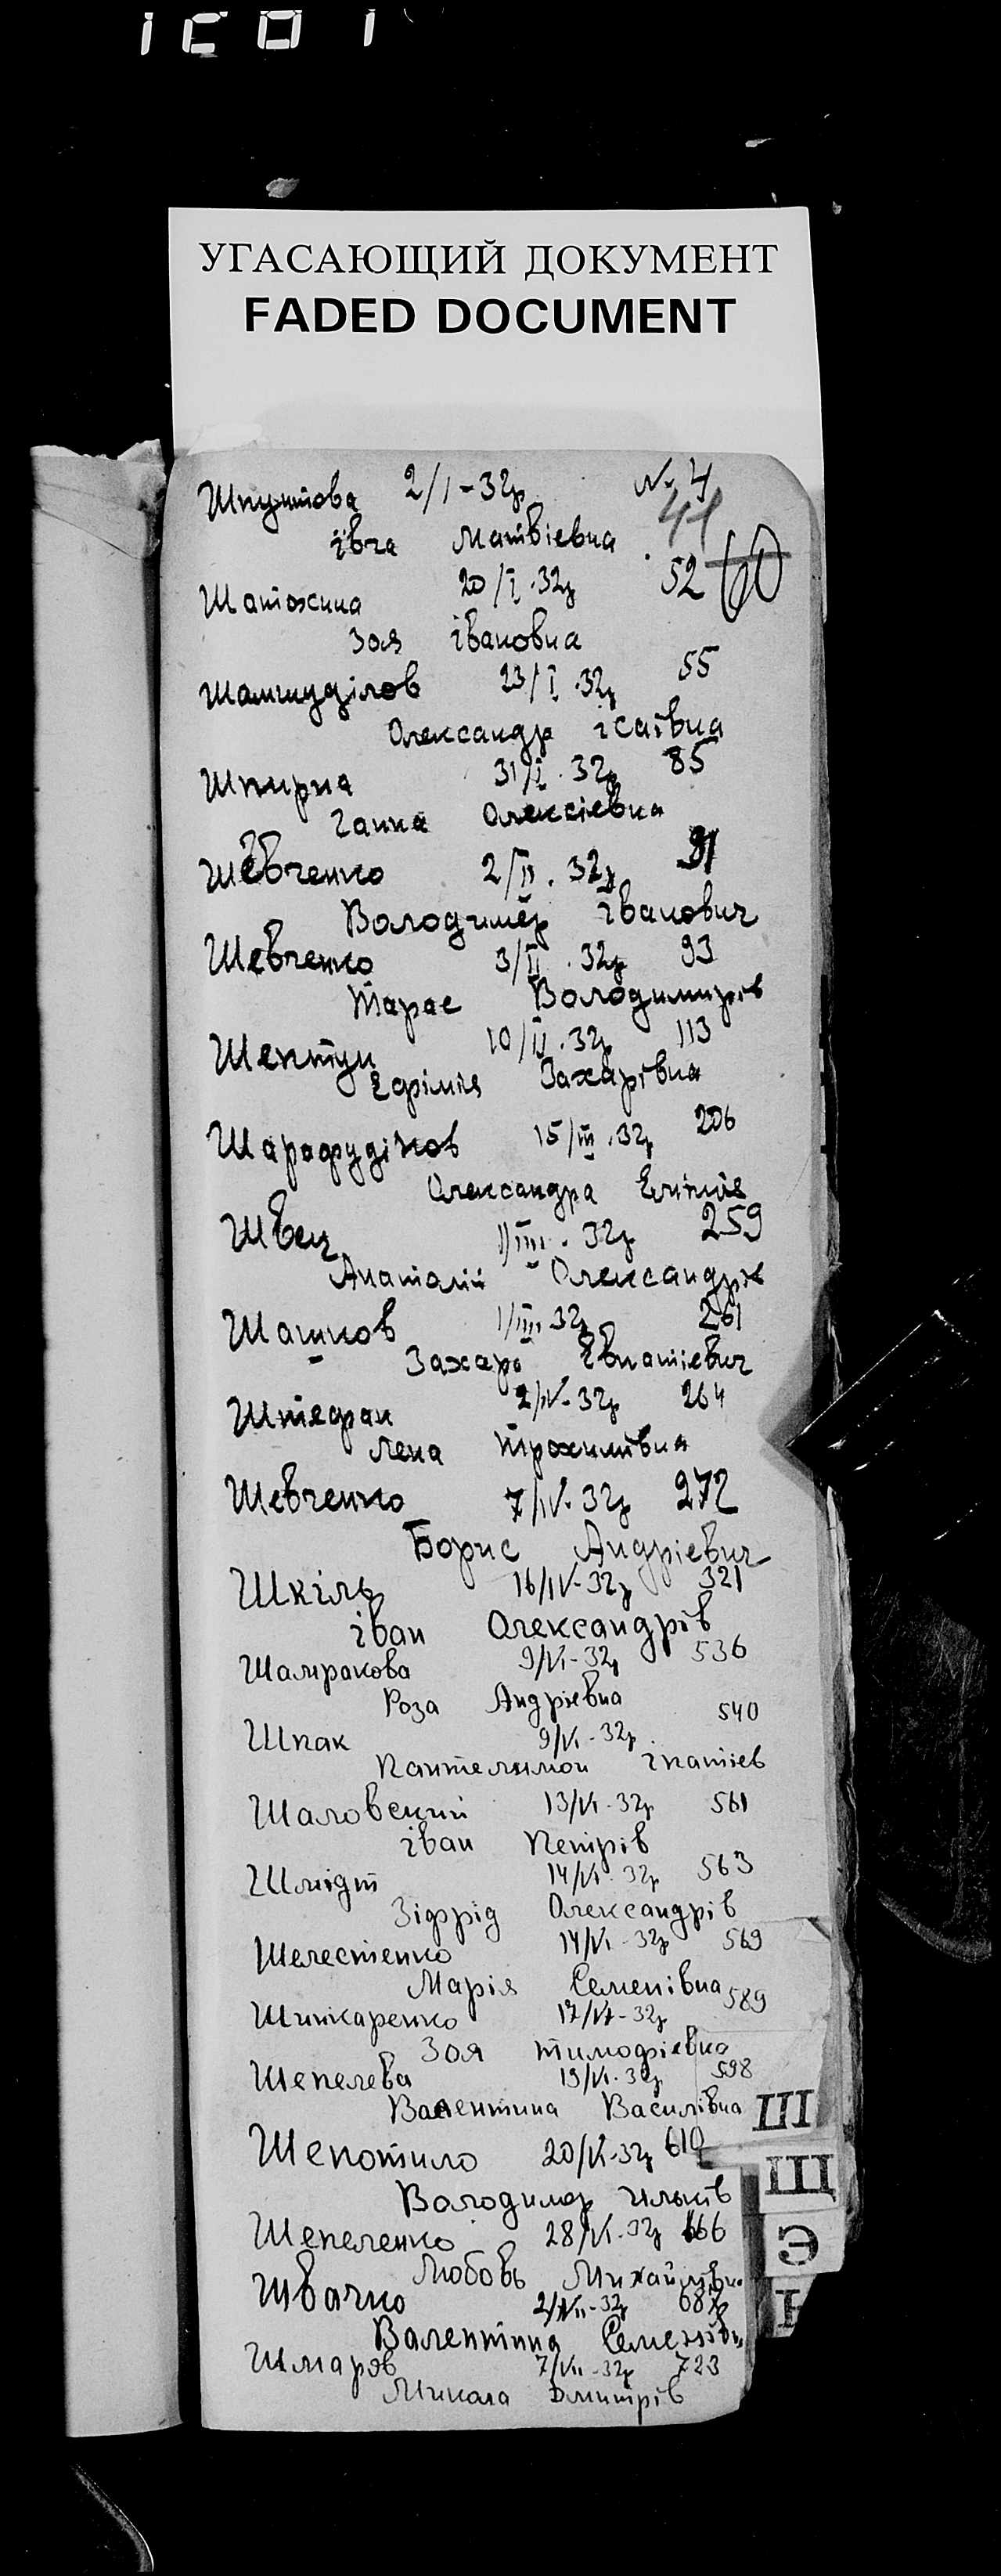 УГАСАЮЩИЙ ДОКУМЕНТ
FADED DOCUMENT
Шпунтова 2/I-32р № 4
41
івга Матвіевна
Шатохина 20/I.32р 52 60
Зоя івановна
23/I.32р 55
Олександр ісаївна
Шпирна 31/I.32р 85
Ганна Олексіевна
Шевченко 2/II.32р 91
Володимер іванович
Шевченко 3/II.32р 93
Тарас Володимирів
Шептун 10/II.32р 113
Ефімія Захарівна
Шарафудінов 15/III.32р 206
Олександра
Швец 1/IIII.32р 259
Анаталій Олександрів
Шашков 1/IIII 32р 261
Захарь Ігнатіевич
Штефан 2/IV-32р 264
Лена Трохимівна
Шевченко 7/IV-32р 272
Борис Андріевич
Шкіль 16/IV-32р 321
іван Олександрів
Шапракова 9/VI-32р 536
Роза Андріевна
Шпак 9/VI-32р 540
Пантелимон ігнатіев
Шаловский 13/VI-32р 561
іван Петрів
Шмідт 14/VI-32р 563
Зіфрід Олександрів
Шелестенко 14/VI-32р 569
Марія Семенівна
Шинкаренко 17/VI-32р 589
Зоя Тимофіевна
Шепелева 19/VI-32р 598
Валентина Василівна
Ш
Шепотило 20/VI-32р 610
Щ
Володимер Ильків
Шепеленко 28/VI-32р 666
Э
Любовь Михайлівн.
Швачко 2/VII-32р 687
Валентина Семенівн.
Шмаров 7/VII-32р 723
Микола Дмитрів